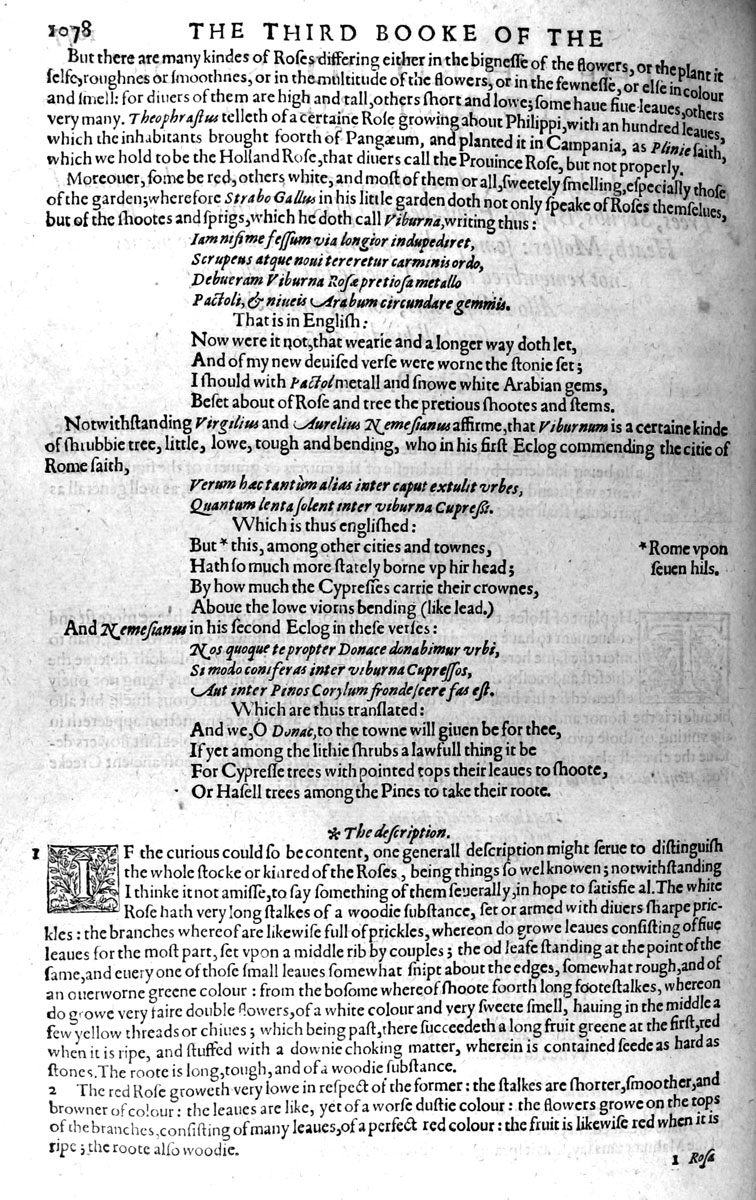 1078 THE THIRD BOOKE OF THE
But there are many kindes of Roſes differing either in the bigneſſe of the flowers, or the plant it
ſelfe, roughnes or ſmoothnes, or in the multitude of the flowers, or in the fewneſſe, or elſe in colour
and ſmell: for diuers of them are high and tall, others ſhort and lowe; ſome haue fiue leaues, others
very many. Theophraſtus telleth of a certaine Roſe growing about Philippi, with an hundred leaues,
which the inhabitants brought foorth of Pangæum, and planted it in Campania, as Plinie ſaith,
which we hold to be the Holland Roſe, that diuers call the Prouince Roſe, but not properly.
Moreouer, ſome be red, others white, and moſt of them or all, ſweetely ſmelling, eſpecially thoſe
of the garden; wherefore Strabo Gallus in his little garden doth not only ſpeake of Roſes themſelues,
but of the ſhootes and ſprigs, which he doth call Viburna, writing thus:
Iam niſi me feſſum via longior indupediret,
Scrupeus atque noui tereretur carminis ordo,
Debueram Viburna Roſæ pretioſa metallo
Pactoli, & niueis Arabum circundare gemmis.
That is in Engliſh:
Now were it not, that wearie and a longer way doth let,
And of my new deuiſed verſe were worne the ſtonie ſet;
I ſhould with Pactol metall and ſnowe white Arabian gems,
Beſet about of Roſe and tree the pretious ſhootes and ſtems.
Notwithſtanding Virgilius and Aurelius Nemeſianus affirme, that Viburnum is a certaine kinde
of ſhrubbie tree, little, lowe, tough and bending, who in his firſt Eclog commending the citie of
Rome ſaith,
Verum hæc tantùm alias inter caput extulit vrbes,
Quantum lenta ſolent inter viburna Cupreſsi.
Which is thus engliſhed:
But * this, among other cities and townes,
*Rome vpon
Hath ſo much more ſtately borne vp hir head;
ſeuen hils.
By how much the Cypreſſes carrie their crownes,
Aboue the lowe viorns bending (like lead.)
And Nemeſianus in his ſecond Eclog in theſe verſes:
Nos quoque te propter Donace donabimur vrbi,
Si modo coniferas inter viburna Cupreſſos,
Aut inter Pinos Corylum frondeſcere fas eſt.
Which are thus tranſlated:
And we, O Donac, to the towne will giuen be for thee,
If yet among the lithie ſhrubs a lawfull thing it be
For Cypreſſe trees with pointed tops their leaues to ſhoote,
Or Haſell trees among the Pines to take their roote.
* The deſcription.
1 IF the curious could ſo be content, one generall deſcription might ſerue to diſtinguiſh
the whole ſtocke or kinred of the Roſes, being things ſo wel knowen; notwithſtanding
I thinke it not amiſſe, to ſay ſomething of them ſeuerally, in hope to ſatisfie al. The white
Roſe hath very long ſtalkes of a woodie ſubſtance, ſet or armed with diuers ſharpe pric-
kles: the branches whereof are likewiſe full of prickles, whereon do growe leaues conſiſting of fiue
leaues for the moſt part, ſet vpon a middle rib by couples; the od leafe ſtanding at the point of the
ſame, and euery one of thoſe ſmall leaues ſomewhat ſnipt about the edges, ſomewhat rough, and of
an ouerworne greene colour: from the boſome whereof ſhoote foorth long footeſtalkes, whereon
do growe very faire double flowers, of a white colour and very ſweete ſmell, hauing in the middle a
few yellow threads or chiues; which being paſt, there ſucceedeth a long fruit greene at the firſt, red
when it is ripe, and ſtuffed with a downie choking matter, wherein is contained ſeede as hard as
ſtones. The roote is long, tough, and of a woodie ſubſtance.
2 The red Roſe groweth very lowe in reſpect of the former: the ſtalkes are ſhorter, ſmoother, and
browner of colour: the leaues are like, yet of a worſe duſtie colour: the flowers growe on the tops
of the branches, conſiſting of many leaues, of a perfect red colour: the fruit is likewiſe red when it is
ripe; the roote alſo woodie.
1 Roſa